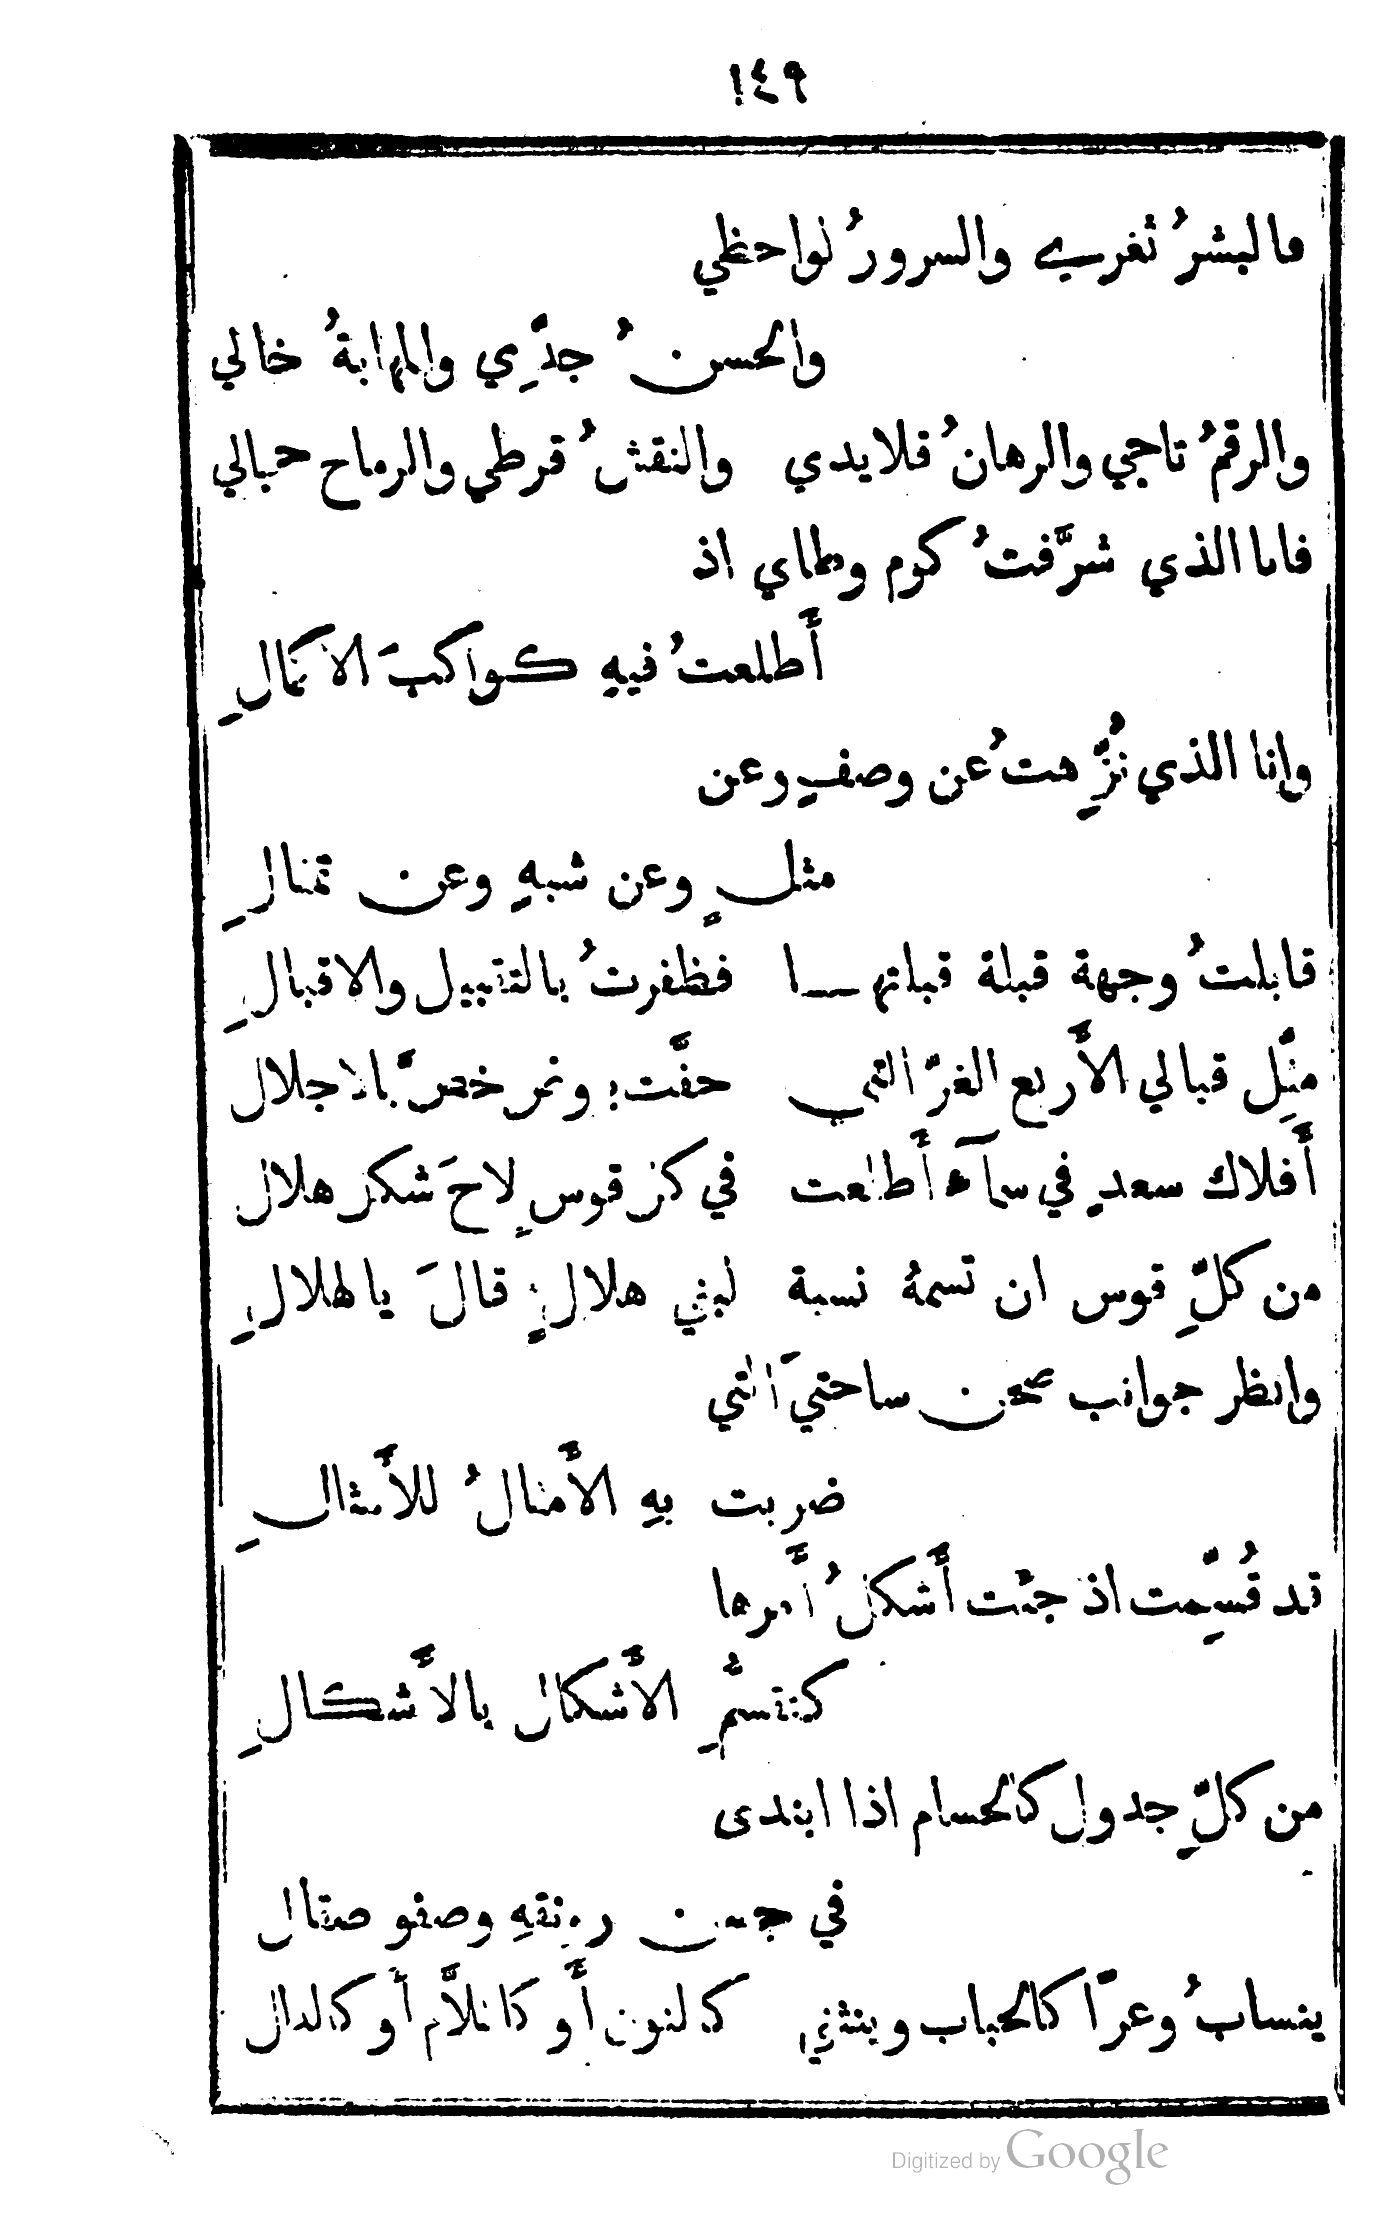 ١٤٩
فالبشرُ ثغري والسرورُ لواحظي
والحسنُ جدِّي والمهابةُ خالي
والرقمُ تاجي والرهانُ قلايدي والنقشُ قرطي والرماح حبالي
فانا الذي شرَّفتُ كوم وطاي اذ
أَطلعتُ فيهِ كواكبَ الاكمالِ
وانا الذي نُزِّهتُ عن وصفٍ وعن
مثلٍ وعن شبهٍ وعن تمثالِ
قابلتُ وجهة قبلة قبلتهـا فظفرتُ بالتقبيل والاقبالِ
مثِّل قبالي الأَربع الغرّ التي حفَّت بي ومن خصَّ بالاجلال
أَفلاك سعدٍ في سمآء أَطلعت في كل قوسٍ لاحَ شكل هلال
من كلِّ قوس ان تسمهُ نسبة لبني هلالٍ قالَ يا لهلالِ
وانظر جوانب صحن ساحتيَ التي
ضربت بهِ الأَمثالُ للأَمثالِ
قد قُسِّمت اذ جئت أَشكلُ أَمرها
كتقسُّمِ الأَشكال بالأَشكالِ
من كلِّ جدول كالحسام اذا ابتدى
في حسن رونقهِ وصفو صقال
ينسابُ وعرًا كالحباب وينثني كالنون أَو كاللاَّم أَو كالدال
Digitized by Google